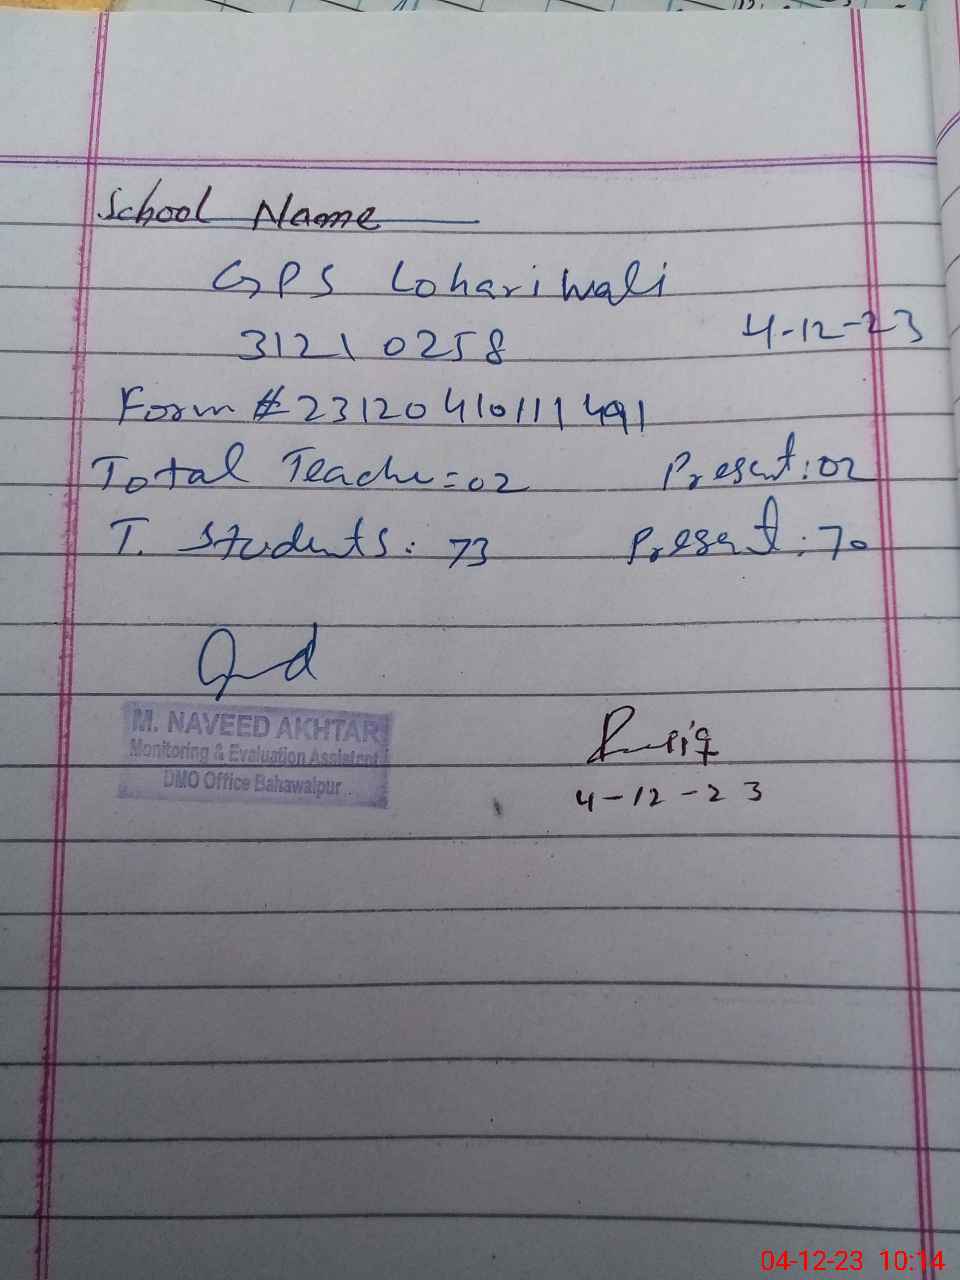 School Name
GPS Lohariwali
31210258 4-12-23
Form # 231204101111491
Total Teache = 02 Present: 02
T. Students: 73 Present: 70
M. NAVEED AKHTAR
Monitoring & Evaluation Assistant
DMO Office Bahawalpur
4-12-23
04-12-23 10:14